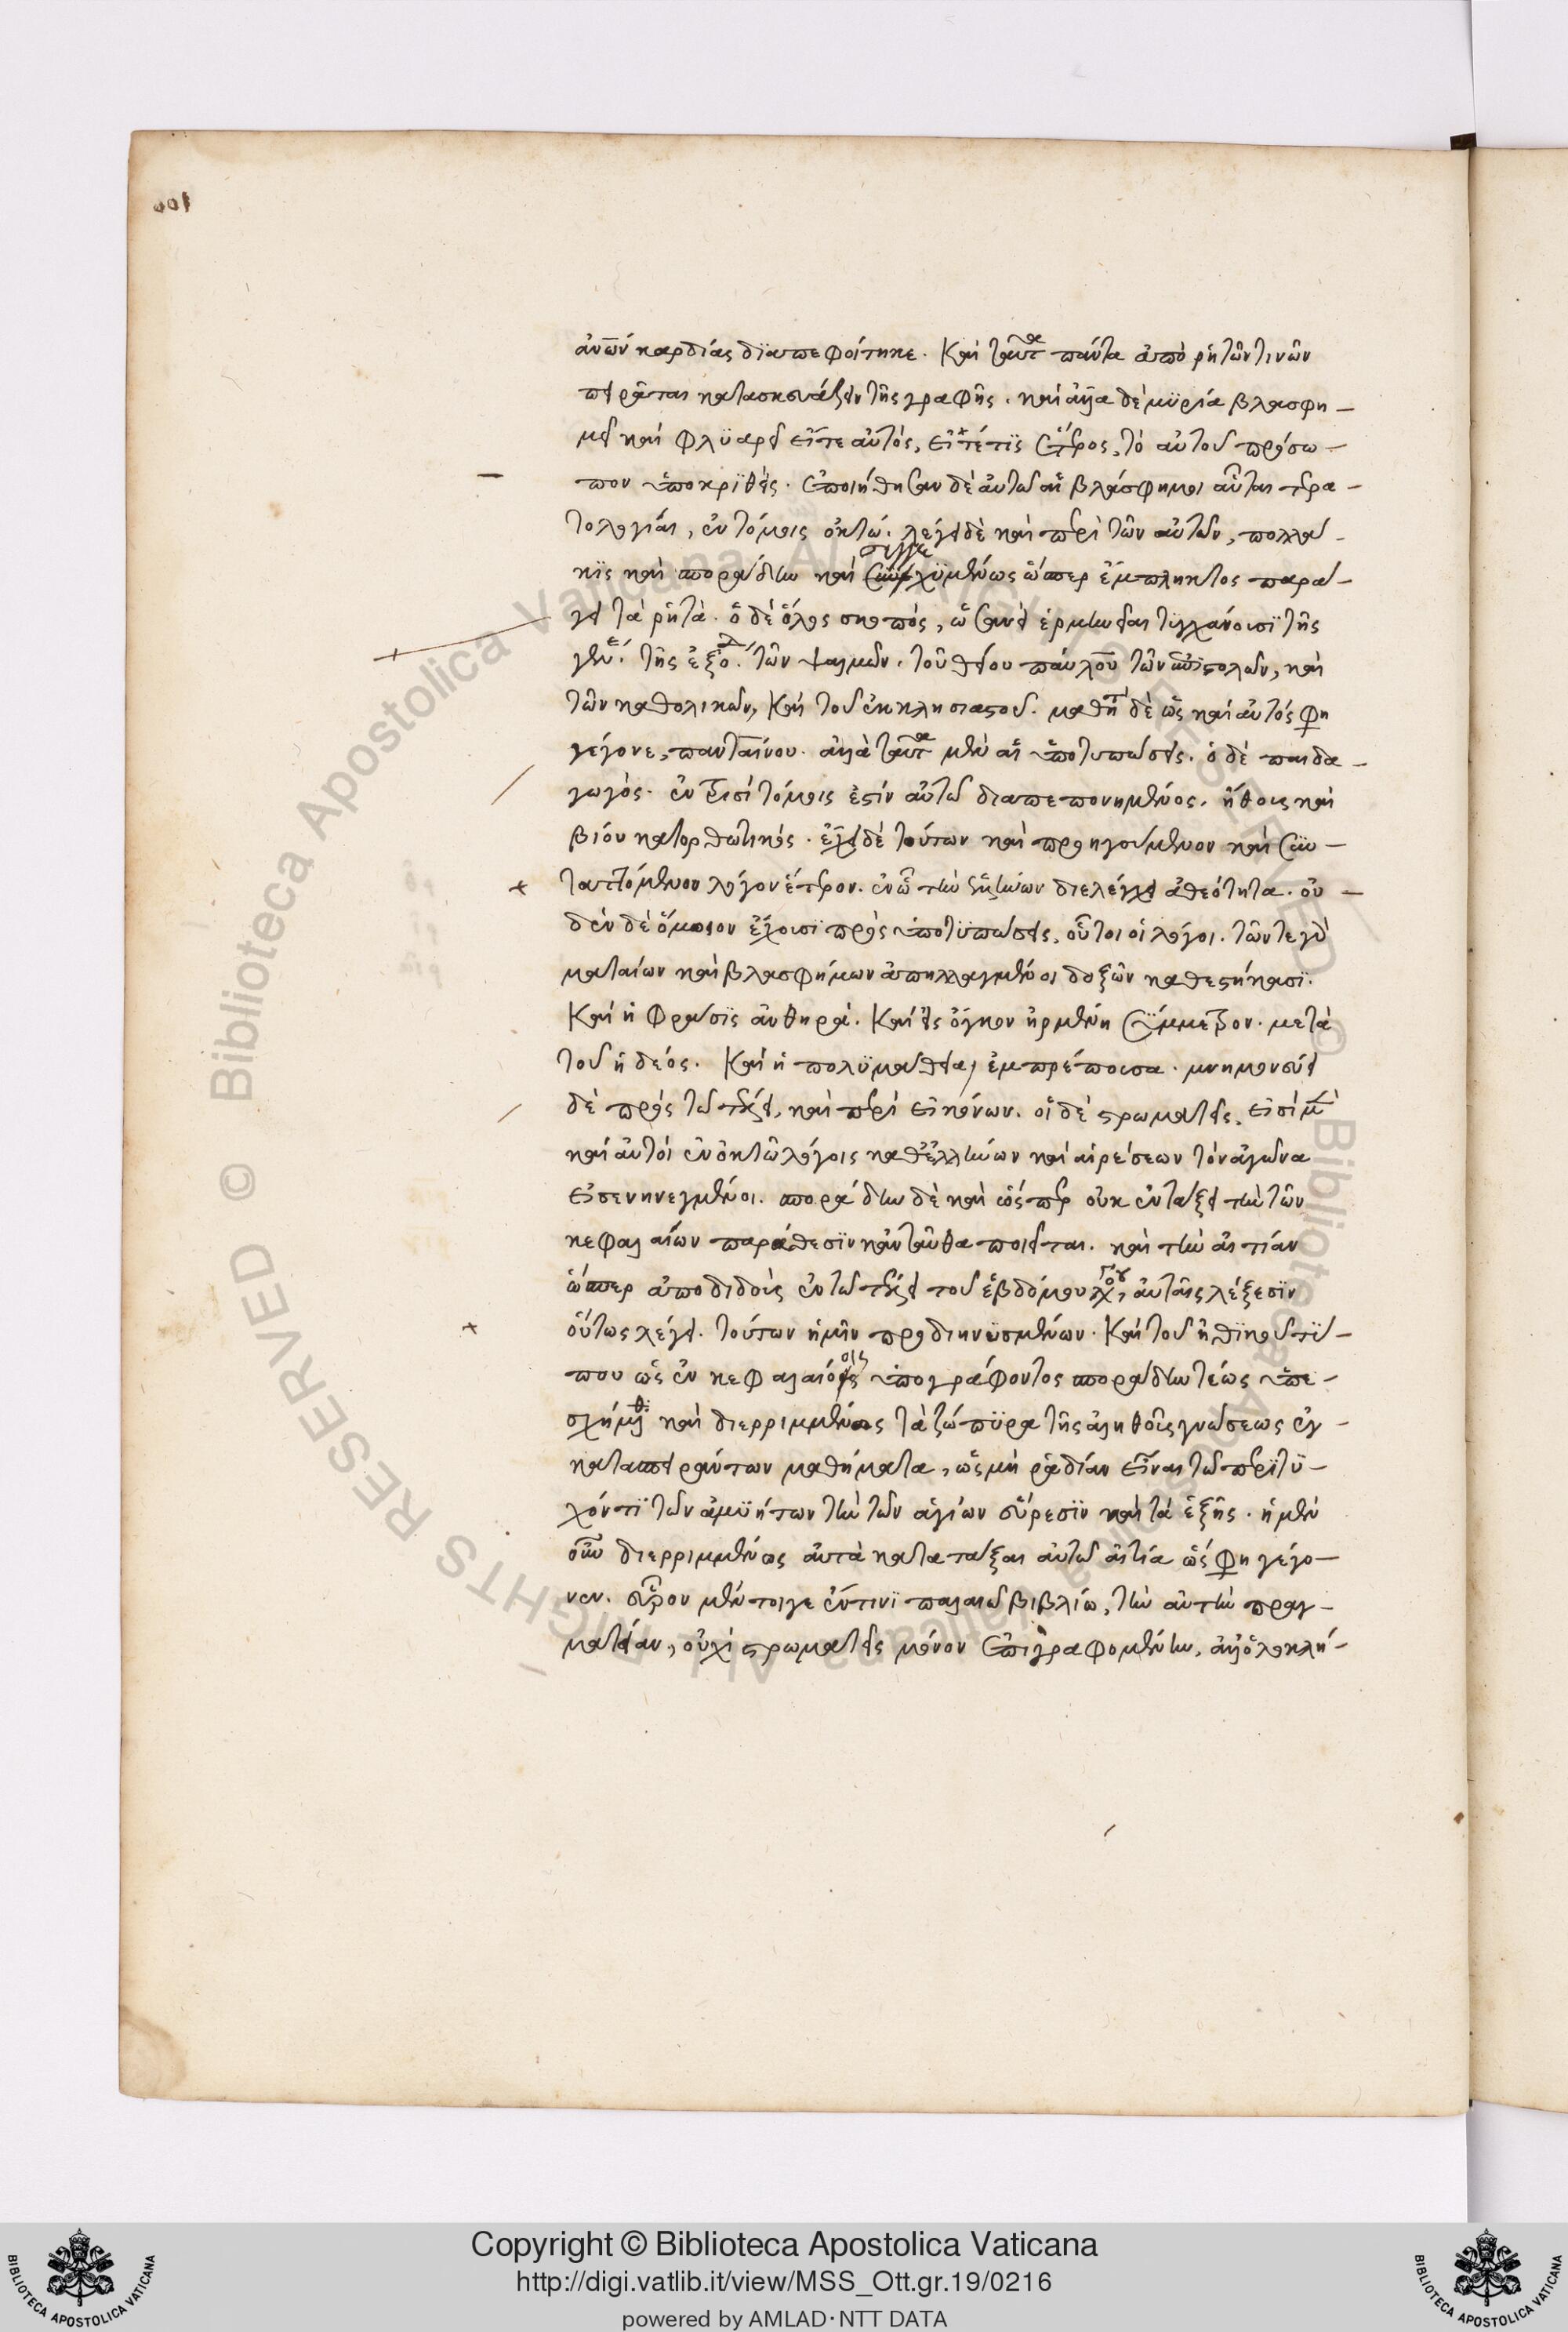 ἀνῶν καρδίας διαπεφοίτηκε. Καὶ ταῦτα πάντα ἀπὸ ῥητῶν τινῶν
πειρᾶται κατασκευάζειν τῆς γραφῆς. καὶ ἄλλα δὲ μϋρία βλασφη-
μεῖ καὶ φλϋαρεῖ εἴτε αὐτός, εἴτέ τϊς ἕτερος, τὸ αὐτοῦ πρόσω-
πον ὑποκρϊθείς. ἐποιήθησαν δὲ αὐτῶ αἱ βλάσφημοι αὗται τερα-
τολογίαι, ἐν τόμοις ὀκτώ. λέγει δὲ καὶ περὶ τῶν αὐτῶν, πολλά-
κϊς καὶ σποράδην καὶ συγκεχϋμένως ὥσπερ ἔμπληκτος παρά-
γει τὰ ῥητὰ. ὁ δὲ ὅλος σκοπός, ὡσανεὶ ἑρμηνεῖαι τϋγχάνουσϊ τῆς
γενέ. τῆς ἐξόδ. τῶν ψαλμῶν. τοῦ θείου παύλου τῶν ἐπϊστολῶν, καὶ
τῶν καθολικῶν, Καὶ τοῦ ἐκκλησιαστοῦ. μαθητὴ δὲ ὡς καὶ αὐτός φη
γέγονε, πανταίνου. ἀλλὰ ταῦτα μὲν αἱ ὑποτυπώσεις. ὁ δὲ παιδα-
γωγὸς. ἐν τρισὶ τόμοις ἐστὶν αὐτῶ διαπεπονημένος. ἤθους καὶ
βίου κατορθωτικός. ἔχει δὲ τούτων καὶ προηγούμενον καὶ συν-
ταττόμενον λόγον ἕτερον. ἐν ᾧ τὴν ἑλλήνων διελέγχει ἀθεότητα. οὐ-
δὲν δὲ ὅμοιον ἔχουσϊ πρὸς ὑποτϋπώσεις, οὗτοι οἱ λόγοι. τῶν τε γὰρ
ματαίων καὶ βλασφήμων ἀπηλλαγμένοι δοξῶν καθεστήκασϊ.
Καὶ ἡ φράσϊς ἀνθηρά. Καὶ εἰς ὄγκον ἠρμένη σϋμμετρον. μετὰ
τοῦ ἡδέος. Καὶ ἡ πολϋμάθεια, ἐμπρέπουσα. μνημονεύει
δὲ πρὸς τῶ τέλει, καὶ περὶ εἰκόνων. οἱ δὲ στρωματεῖς, εἰσὶ μὲν
καὶ αὐτοὶ ἐν ὀκτὼ λόγοις καθἑλλήνων καὶ αἱρέσεων τὸν ἀγῶνα
εἰσενηνεγμένοι. σποράδην δὲ καὶ ὥσπερ οὐκ ἐν τάξει τὴν τῶν
κεφαλαίων παράθεσϊν κἀνταῦθα ποιεῖται. καὶ τὴν αἰτίαν
ὥσπερ ἀποδιδοὺς ἐν τῶ τέλει τοῦ ἑβδόμου λόγου, αὐταῖς λέξεσϊν
οὕτως λέγει. τούτων ἡμῖν προδιηνϋσμένων. Καὶ τοῦ ἠθϊκοῦ τϋ-
που ὡς ἐν κεφαλαίοις ὑπογράφοντος σποράδην τέως ὑπε-
σχήμεθ. καὶ διερριμμένως τὰ ζώπϋρα τῆς ἀληθοῦς γνώσεως ἐγ-
κατασπειράντων μαθήματα, ὡς μὴ ῥαδίαν εἶναι τῶ περϊτϋ-
χόντϊ τῶν ἀμϋήτων τὴν τῶν ἁγίων εὕρεσϊν καὶ τὰ ἑξῆς. ἡ μὲν
οὖν διερριμμένως αὐτὰ κατατάξαι αὐτῶ αἰτία ὥς φη γέγο-
νεν. εὗρον μέντοιγε ἔν τινϊ παλαιῶ βιβλίω, τὴν αὐτὴν πραγ-
ματείαν, οὐχὶ στρωματεῖς μόνον ἐπιγραφομένην, ἀλλ' ὁλοκλή-
Copyright © Biblioteca Apostolica Vaticana
http://digi.vatlib.it/view/MSS_Ott.gr.19/0216
powered by AMLAD·NTT DATA